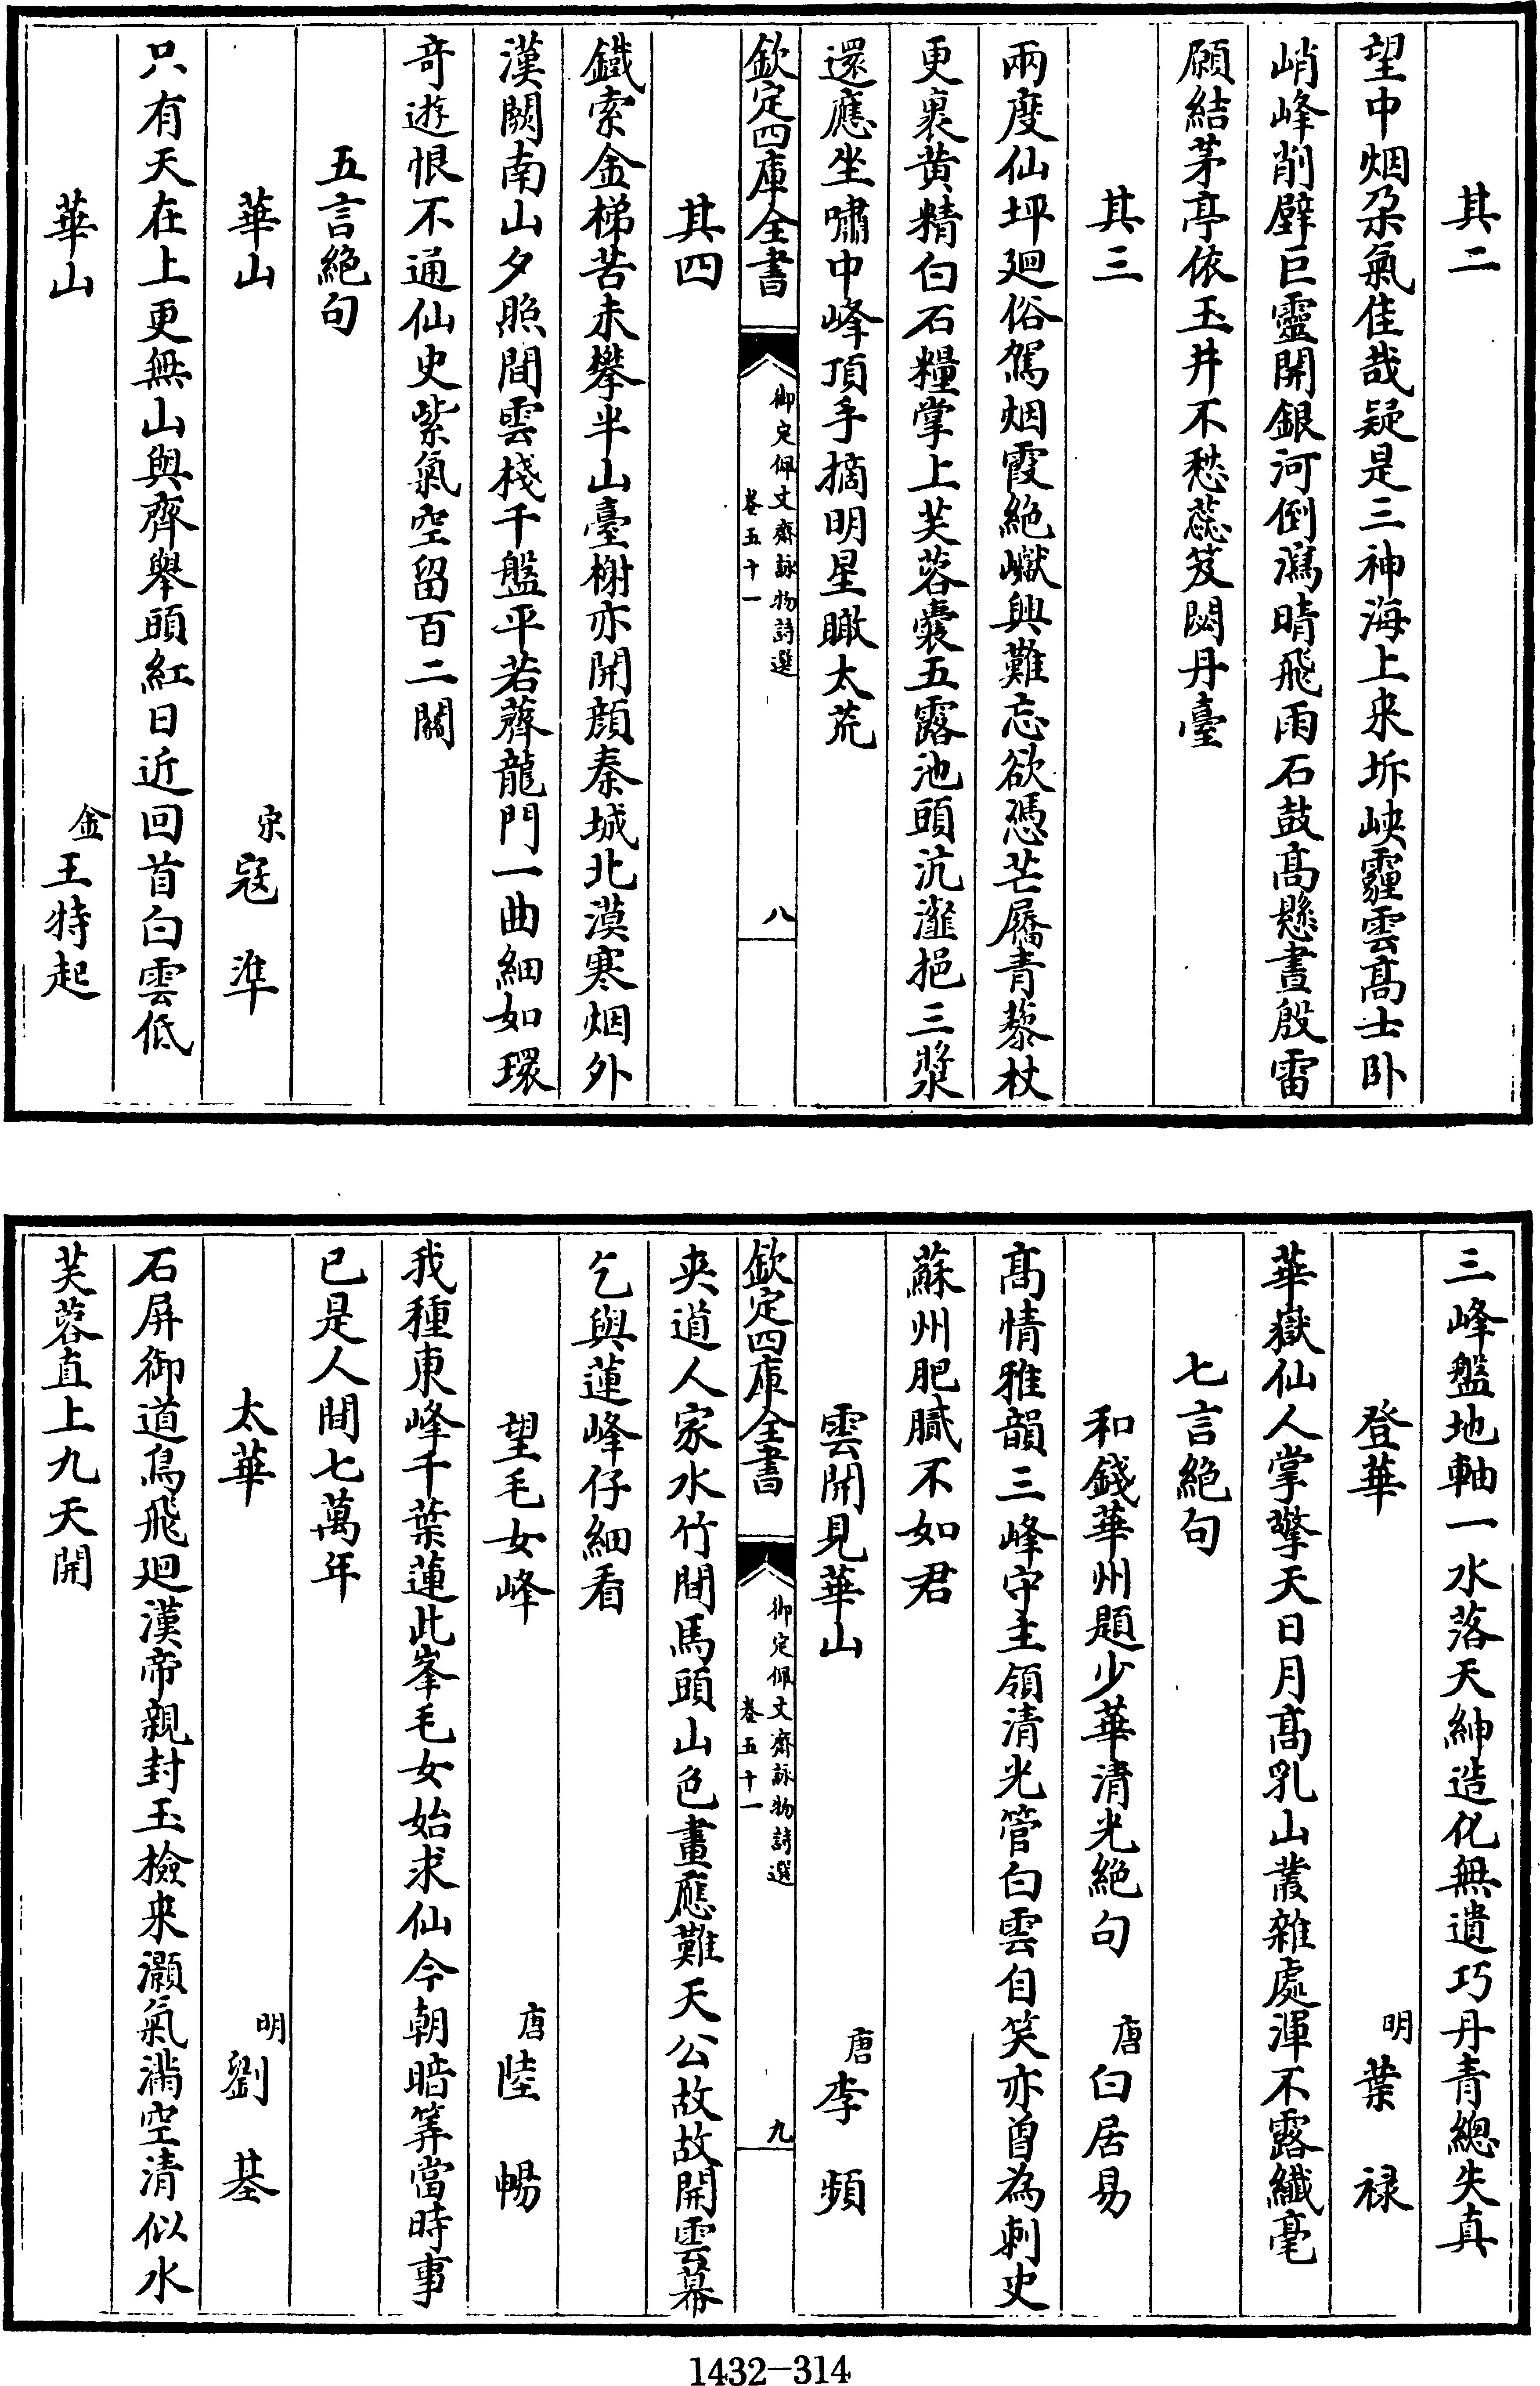 其二
望中烟朶氣佳哉疑是三神海上来坼峽霾雲髙士卧
峭峰削壁巨靈開銀河倒瀉晴飛雨石鼓髙懸晝殷雷
願結茅亭依玉井不愁蕊笈閟丹臺
其三
兩度仙坪廻俗駕烟霞絶巘興難忘欲憑芒屩青藜杖
更裹黄精白石糧掌上芙蓉囊五露池頭沆瀣挹三漿
還應坐嘯中峰頂手摘明星瞰太荒
欽定四庫全書
御定佩文齋詠物詩選
卷五十一
八
其四
鐵索金梯苦未攀半山臺榭亦開顔秦城北漠寒烟外
漢闕南山夕照間雲棧千盤平若薺龍門一曲細如環
竒遊恨不通仙史紫氣空留百二關
五言絶句
華山
宋寇準
只有天在上更無山與齊舉頭紅日近回首白雲低
華山
金王特起
三峰盤地軸一水落天紳造化無遺巧丹青總失真
登華
明葉祿
華嶽仙人掌擎天日月髙乳山叢雜處渾不露纎毫
七言絶句
和錢華州題少華清光絶句
唐白居易
髙情雅韻三峰守主領清光管白雲自笑亦曽為刺史
蘇州肥膩不如君
雲開見華山
唐李頻
欽定四庫全書
御定佩文齋詠物詩選
卷五十一
九
夾道人家水竹間馬頭山色畫應難天公故故開雲幕
乞與蓮峰仔細看
望毛女峰
唐陸暢
我種東峰千葉蓮此峯毛女始求仙今朝暗筭當時事
已是人間七萬年
太華
明劉基
石屏御道鳥飛廻漢帝親封玉檢来灝氣滿空清似水
芙蓉直上九天開
1432-314